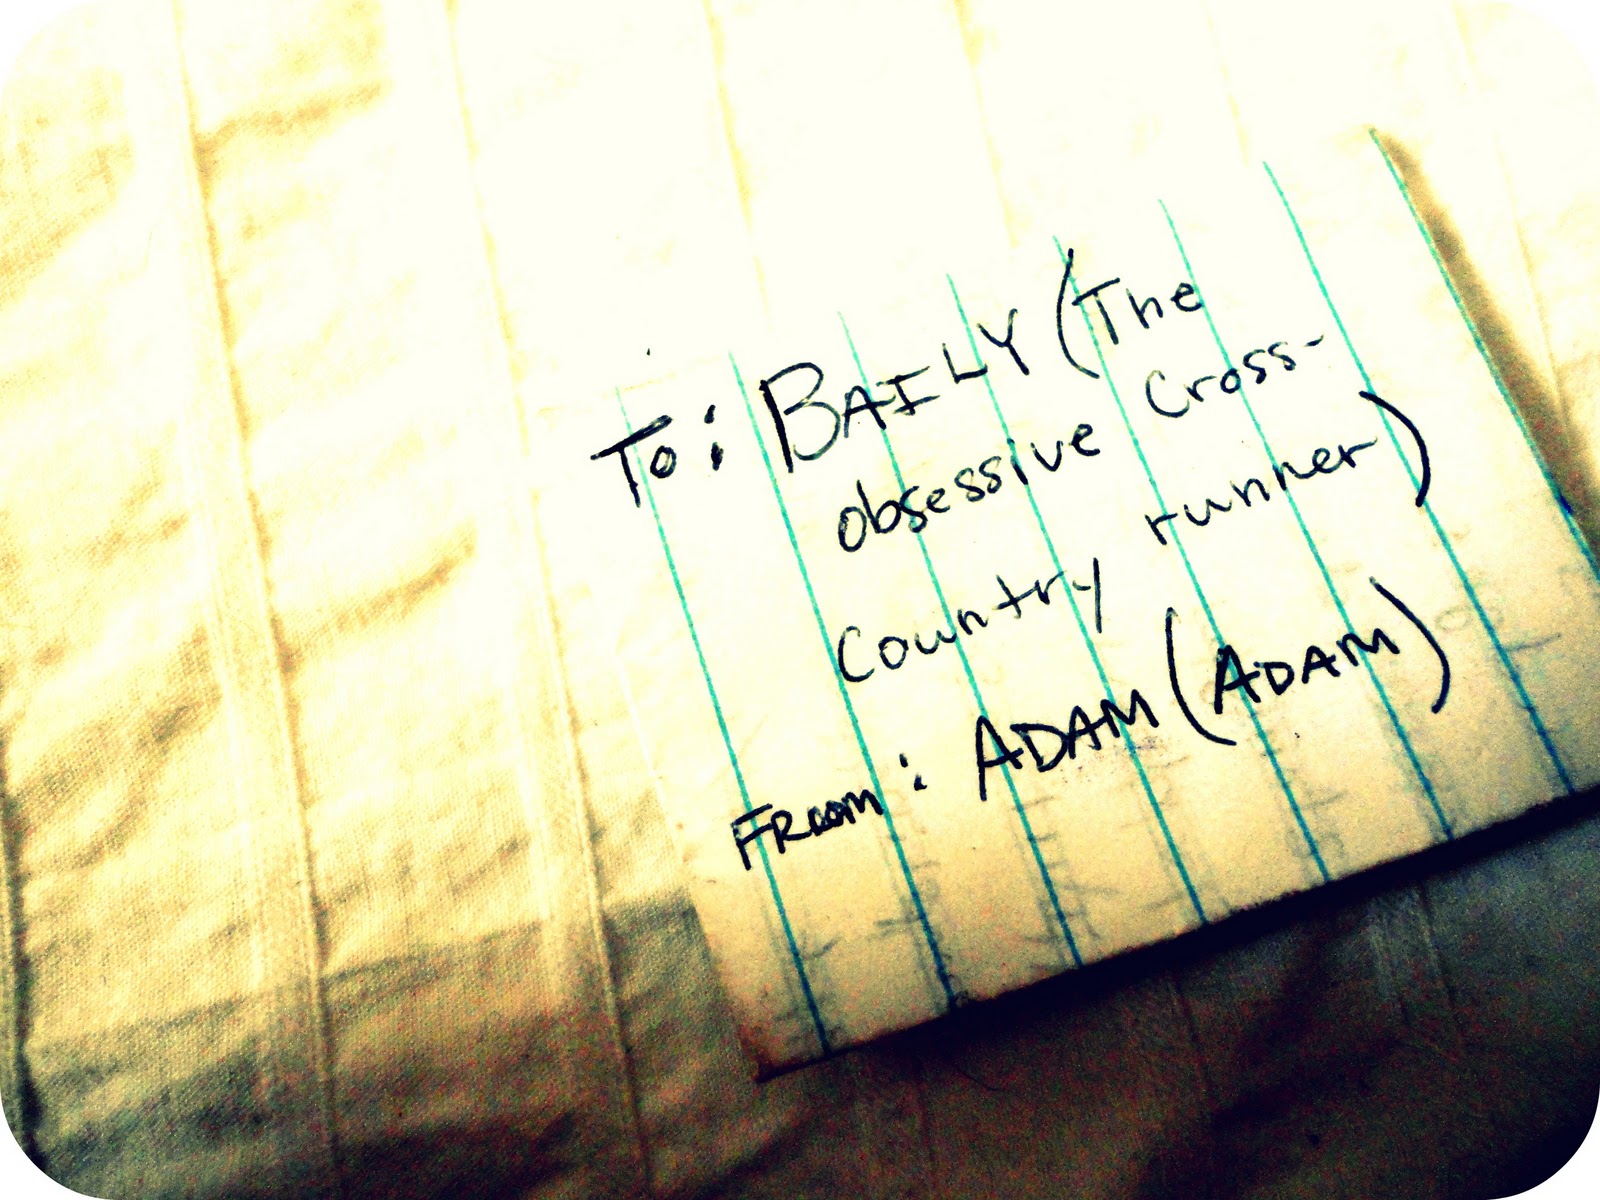 To: BAILY (The
obsessive Cross-
Country runner)
FROM: ADAM (ADAM)